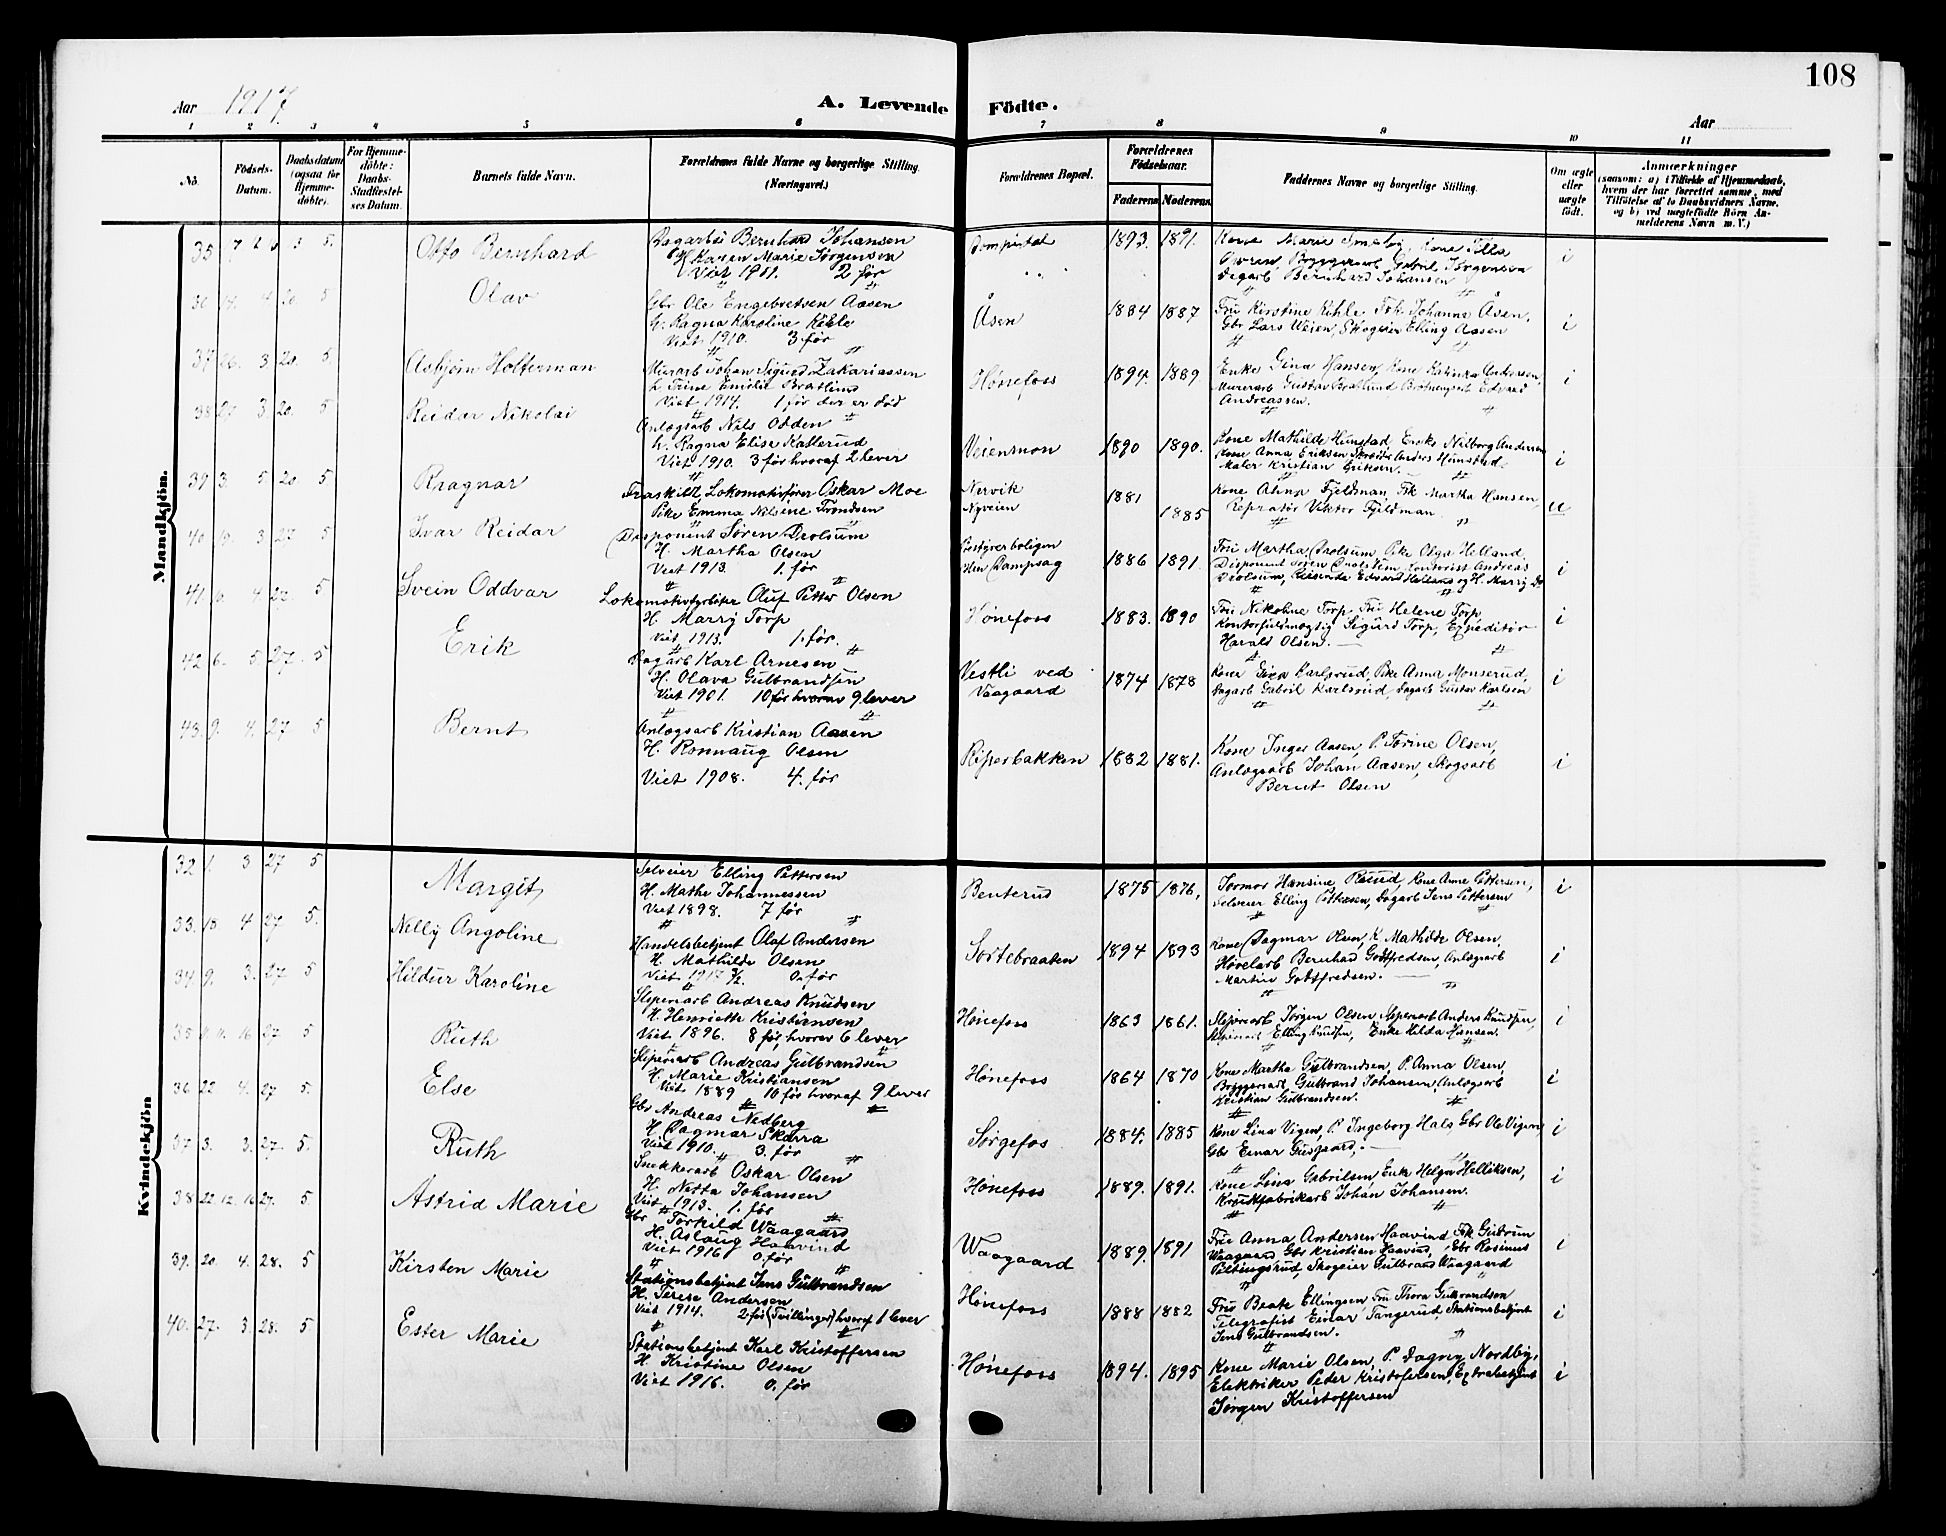 108
Aar 1917
A. Levende Födte.
Aar
1 2 3 4 5 6 7 8 9 10 11
No.
Födsels-Datum.
Daabsdatum (ogsaa for Hjemme-döbte).
For Hjemme-döbte: Daabs-Stadfæstel-ses Datum.
Barnets fulde Navn.
Forældrenes fulde Navne og borgerlige Stilling (Næringsvei.)
Forældrenes Bopæl.
Forældrenes Födselsaar.
Faderens Moderens
Faddernes Navne og borgerlige Stilling.
Om ægte eller uægte födt.
Anmærkninger
(saasom: a) i Tilfælde af Hjemmedaab,
hvem der har forrettet samme, med
Tilföielse af to Daabsvidners Navne.
og b) ved uægtefödte Börn An-
melderens Navn m. V.)
Mandkjön.
35 5. Otto Bernhard Bernhard Johansen 1893. 1891. Kone Marie
H Karen Marie Sørgensen
Viet 1911. 2 før
Bernhard Johansen
i
4 20 5 Olav Gbr Ole Engebretsen Aasen Åsen 1884 1887 Fru Kirstine Kihle Frk Johanna Åsen,
h. Ragna Karoline Kihle Gbr Lars Veien, Skogeier Elling Aasen
Viet 1910. 3 før
i
37 26. 3 20. 5. Asbjørn Holterman Murarb Johan Sigurd Zakariassen Hønefoss 1894. 1889 Enke Gina Hansen, Kone Katinka Andersen,
h Trine Emilie Bratlund Murerarb Gustav Edvard
Viet 1914. 1 før der er død Andreassen.
i
38 29. 3. 20. 5 Reidar Nikolai Anlægsarb Nils Odden Veiensmon 1890 1890. Kone Mathilde Hunstad Enke Andersen
h. Ragna Elise Kallerud Kone Anna Eriksen Anders Hunstad
Viet 1910. 3 før hvoraf 2 lever Maler Kristian Eriksen.
i
39 3. 5 20 5 Ragnar Fraskilt Lokomotivfører Oskar Moe Nervik 1881 Kone Fjeldman Frk Martha Hansen,
Pike Emma Nilsine Trondsen Nyveien 1885 Viktor Fjeldman
u
40 19. 3 27 5 Ivar Reidar Disponent Søren Drolsum Bestyrerboligen 1886 1891. Fru Martha Drolsum, Pike Olga Helland
H. Martha Olsen Hen Dampsag Disponent Søren Kontorist Andreas
Viet 1913. 1. før Drolsum, Edvard Helland og H. Marry Do
i
41 6. 4 27. 5 Svein Oddvar Lokomotivfyrbøter Oluf Petter Olsen Hønefoss 1883. 1890 Fru Nikoline Torp Fru Helene Torp
H. Marry Torp Kontorfuldmægtig Sigurd Torp, Expeditør
Viet 1913. 1. før. Harald Olsen.
i
42 6. 5. 27. 5 Erik Dagarb Karl Arnesen Vestli ved Vaagaard 1874 1878 Kone Gina Karlsrud, Pike Anna Monserud,
H. Olava Gulbrandsen Dagarb Gabril Karlsrud, Dagarb Gustav Karlsen
Viet 1901. 10 før hvorav 9 lever
i
43. 9. 4. 27 5 Bernt Anlægsarb Kristian Aasen Ripperbakken 1882 1881. Kone Inger Aasen, P. Torine Olsen,
H. Ronnaug Olsen Anlægsarb Johan Aasen, Skogsarb
Viet 1908. 4. før Bernt Olsen
i
Kvindekjön
32 1. 3 27 5 Margit Selveier Elling Pettersen Benterud 1875 1876, Jormor Hansine Rud, Kone Anne Pettersen,
H. Mathe Johannessen Selveier Elling Pettersen, Dagarb Jens Pettersen
Viet 1898. 7 før
i
33. 18. 4 27 5. Nelly Angoline Handelsbetjent Olaf Andersen Sortebraaten 1894 1893 Kone Dagmar Olsen, K. Mathilde Olsen,
H. Mathilde Olsen Høvelarb Bernhad Godtfredsen, Anlægsarb
Viet 1917 0. før Martin Godtfredsen.
i
34. 9. 3. 27 5 Hildur Karoline Sliperiarb Andreas Knudsen Hønefoss 1863 1861. Sliperiarb Jørgen Olsen Sliperiarb Anders Knudsen,
H. Henriette Kristiansen Elling Knudsen, Enke Hilda Hansen.
Viet 1896. 8 før, hvorav 6 lever
i
35 11. 16 27. 5 Ruth Sliperiarb Andreas Gulbrandsen Hønefoss 1864 1870 Kone Martha Gulbrandsen, P. Anna Olsen,
H. Marie Kristiansen Bryggeriarb Gulbrand Johansen, Anlægsarb
Viet 1889 10 før hvoraf 9 lever Kristian Gulbrandsen.
i
36 22 4. 27 5. Else Gbr Andreas Nedberg Sørgefos 1884. 1885 Kone Lina Vigen, P. Ingeborg Hals, Gbr Ole Vigen,
H Dagmar Skarra Gbr Einar
Viet 1910. 3. før
i
37 3. 3. 27. 5. Ruth Snekkerarb Oskar Olsen Hønefoss 1889. 1891. Kone Lina Gabrilsen, Enke Helga Helliksen,
H. Netta Johansen Johan Johansen.
Viet 1913. 1. før
i
38 22 12. 16 27. 5 Astrid Marie Gbr Torkild Waagaard Waagaard 1889. 1891 Fru Anna Andersen Haavind Frk Gudrun
H. Aslaug Haavind Waagaard Gbr Kristian Haavind, Gbr Rasmus
Viet 1916 0. før Piltingsrud, Skogeier Gulbrand Waagaard
i
39. 20 4. 28. 5 Kirsten Marie Stationsbetjent Jens Gulbrandsen Hønefoss 1888 1882 Fru Beate Ellingsen, Fru Thora Gulbrandson
H. Terese Andersen Telegrafist Einar Tangerud, Stationsbetjent
Viet 1914. 2 før (Tvillinger) hvoraf 1 lever Jens Gulbrandsen.
i
40. 27. 3. 28. 5 Ester Marie Stationsbetjent Karl Kristoffersen Hønefoss 1894. 1895 Kone Marie Olsen, P. Dagny Nordby,
H. Kristine Olsen Elektriker Peder Kristofersen, Extrabetjent
Viet 1916. 0. før Jørgen Kristoffersen
i